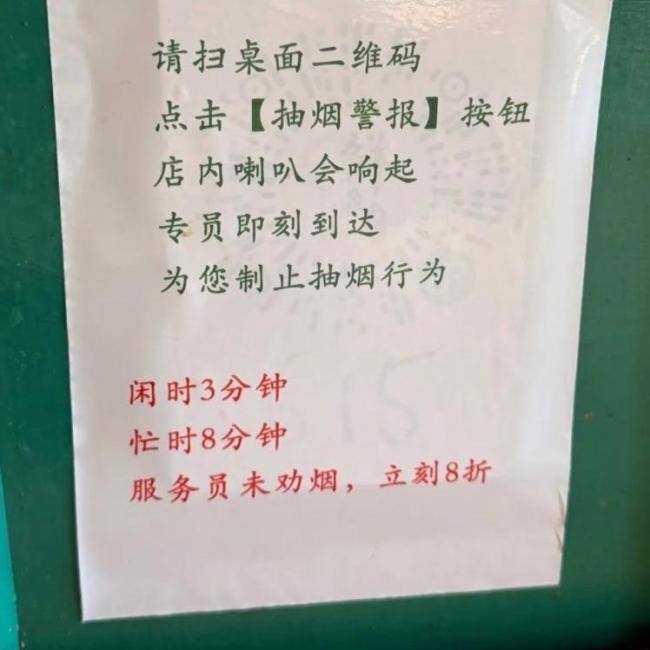 请扫桌面二维码
点击【抽烟警报】按钮
店内喇叭会响起
专员即刻到达
为您制止抽烟行为
闲时3分钟
忙时8分钟
服务员未劝烟，立刻8折